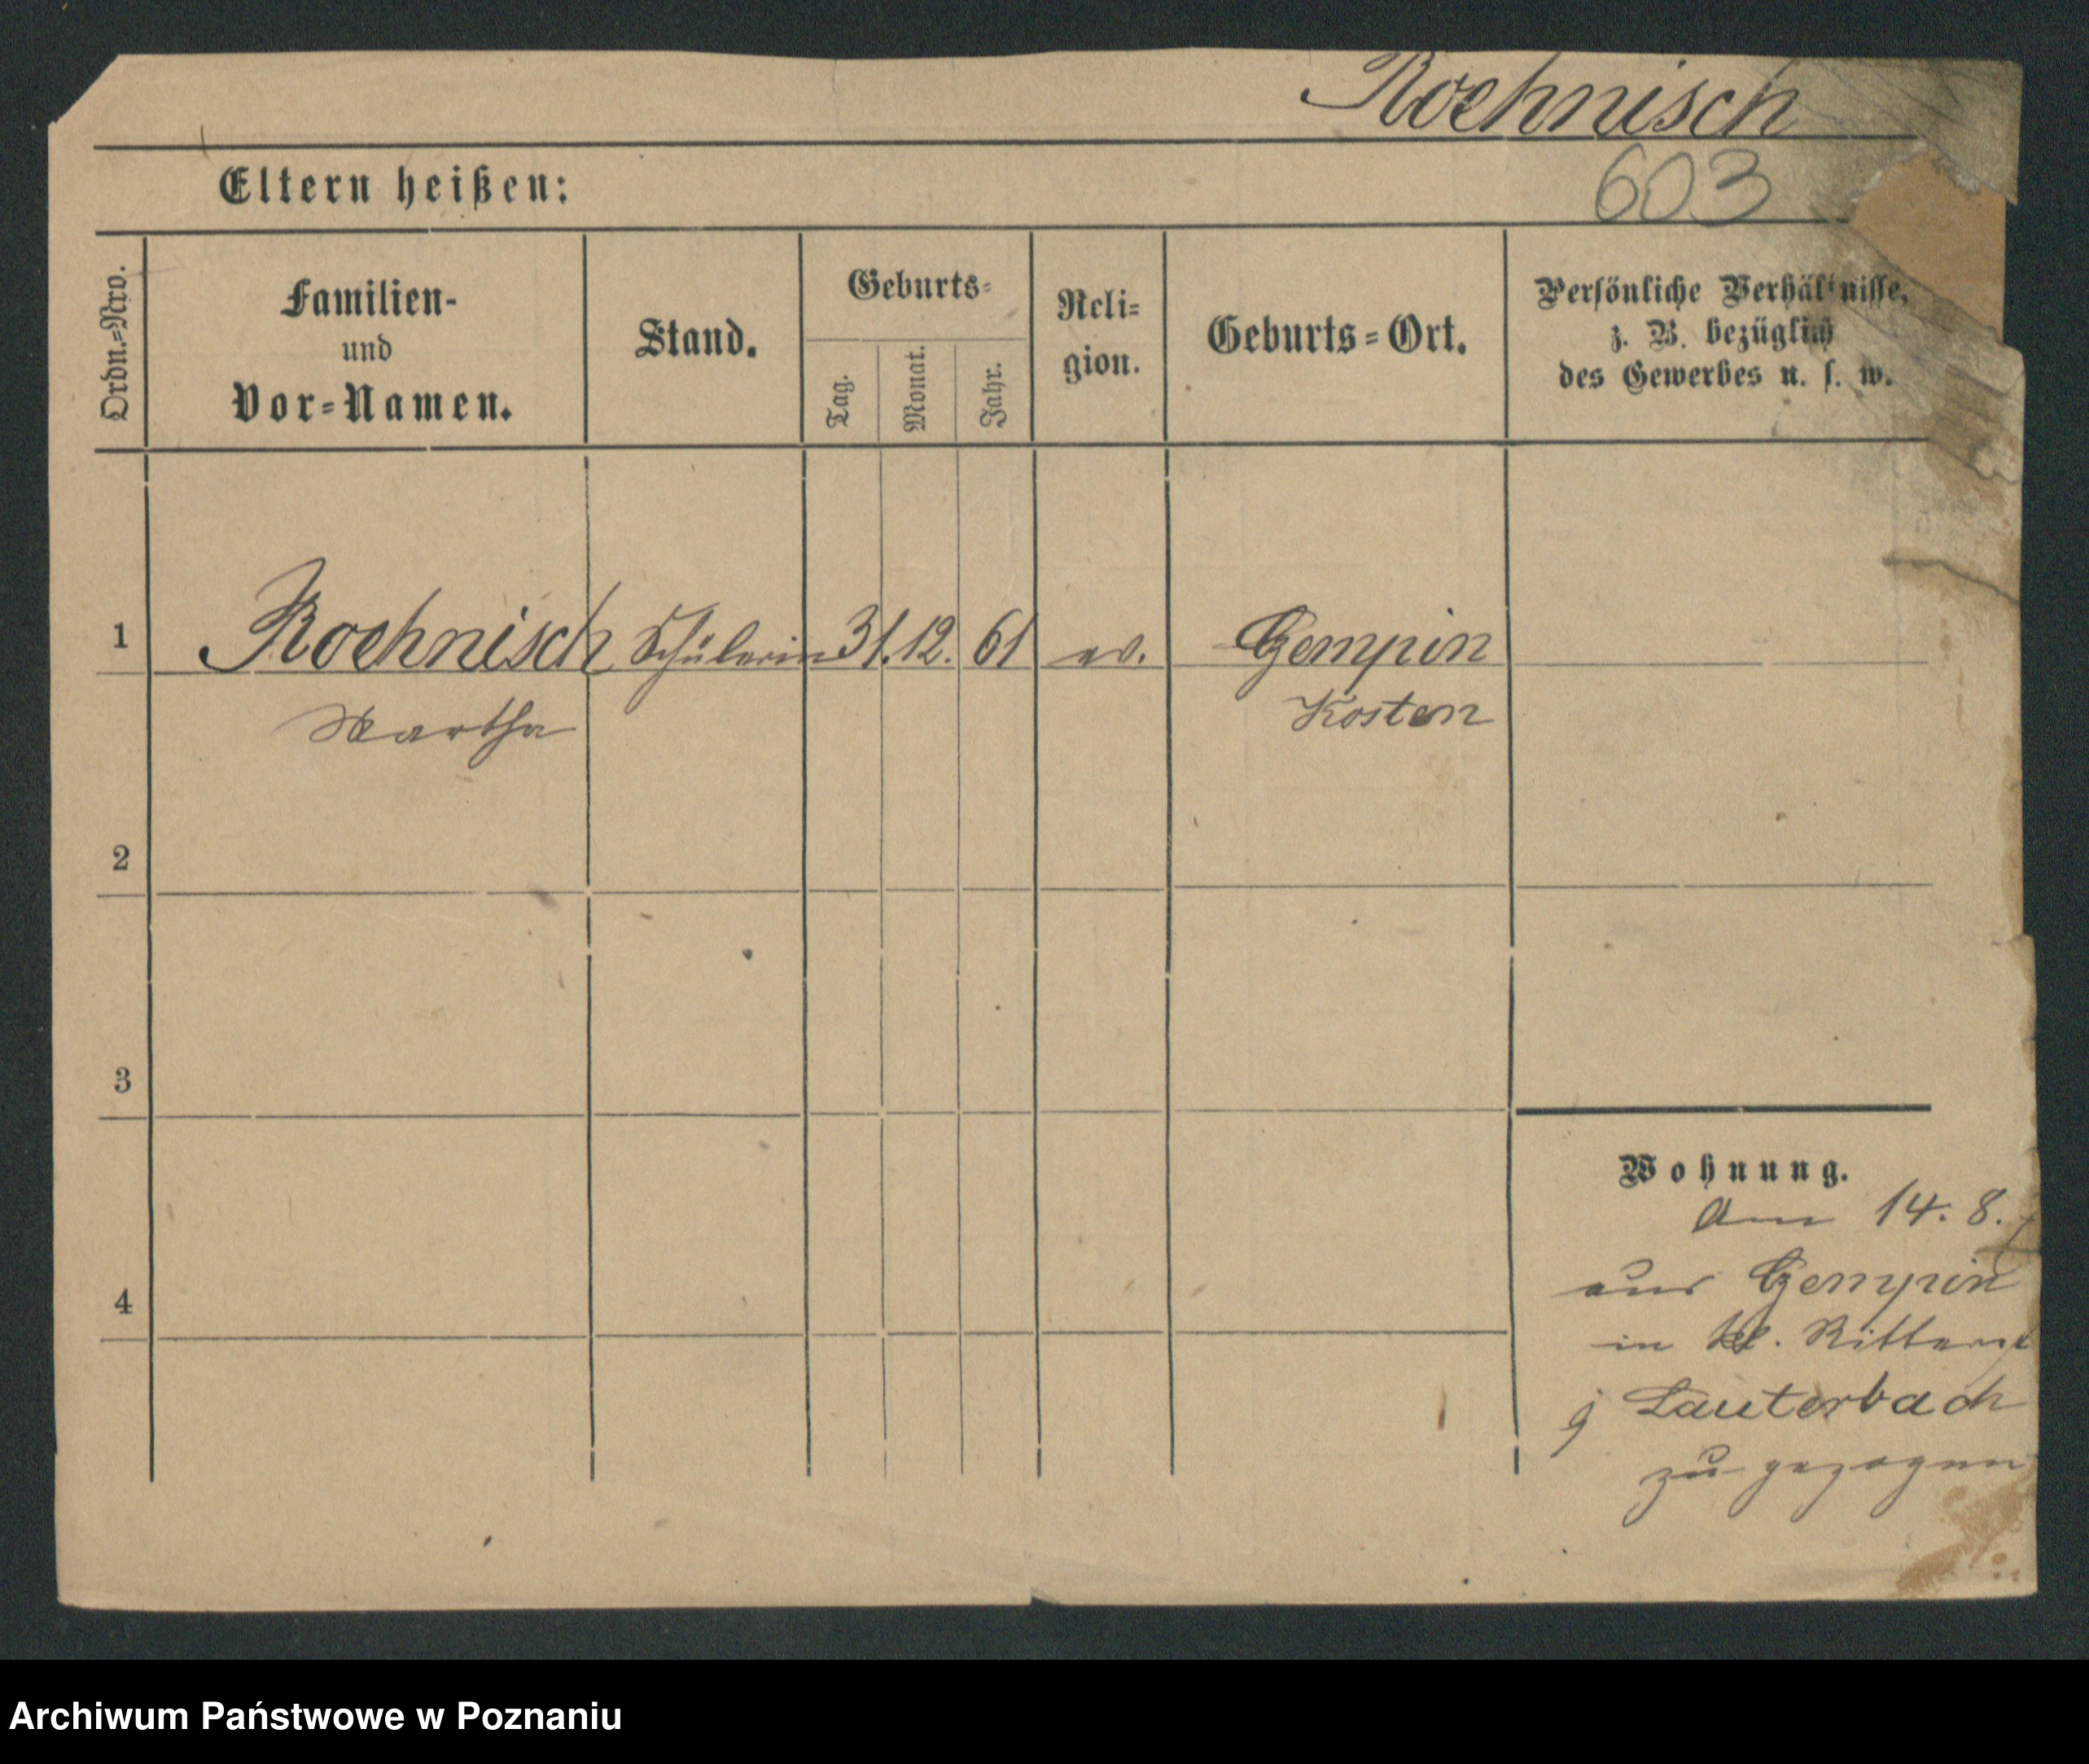 Roehnisch
Eltern heißen:
603
Ordn.=Nro.
Familien-
und
Vor=Namen.
Stand.
Geburts=
Tag.
Monat.
Jahr.
Reli=
gion.
Geburts=Ort.
Persönliche Verhältnisse,
z. B. bezüglich
des Gewerbes u. s. w.
1 Roehnisch Schülerin 31. 12. 61 ev. Gempin
Martha Kosten
2
3
4
Wohnung.
Am 14. 8.
aus Gempin
in kl. Ritterst
Lauterbach
zu gezogen
Archiwum Państwowe w Poznaniu